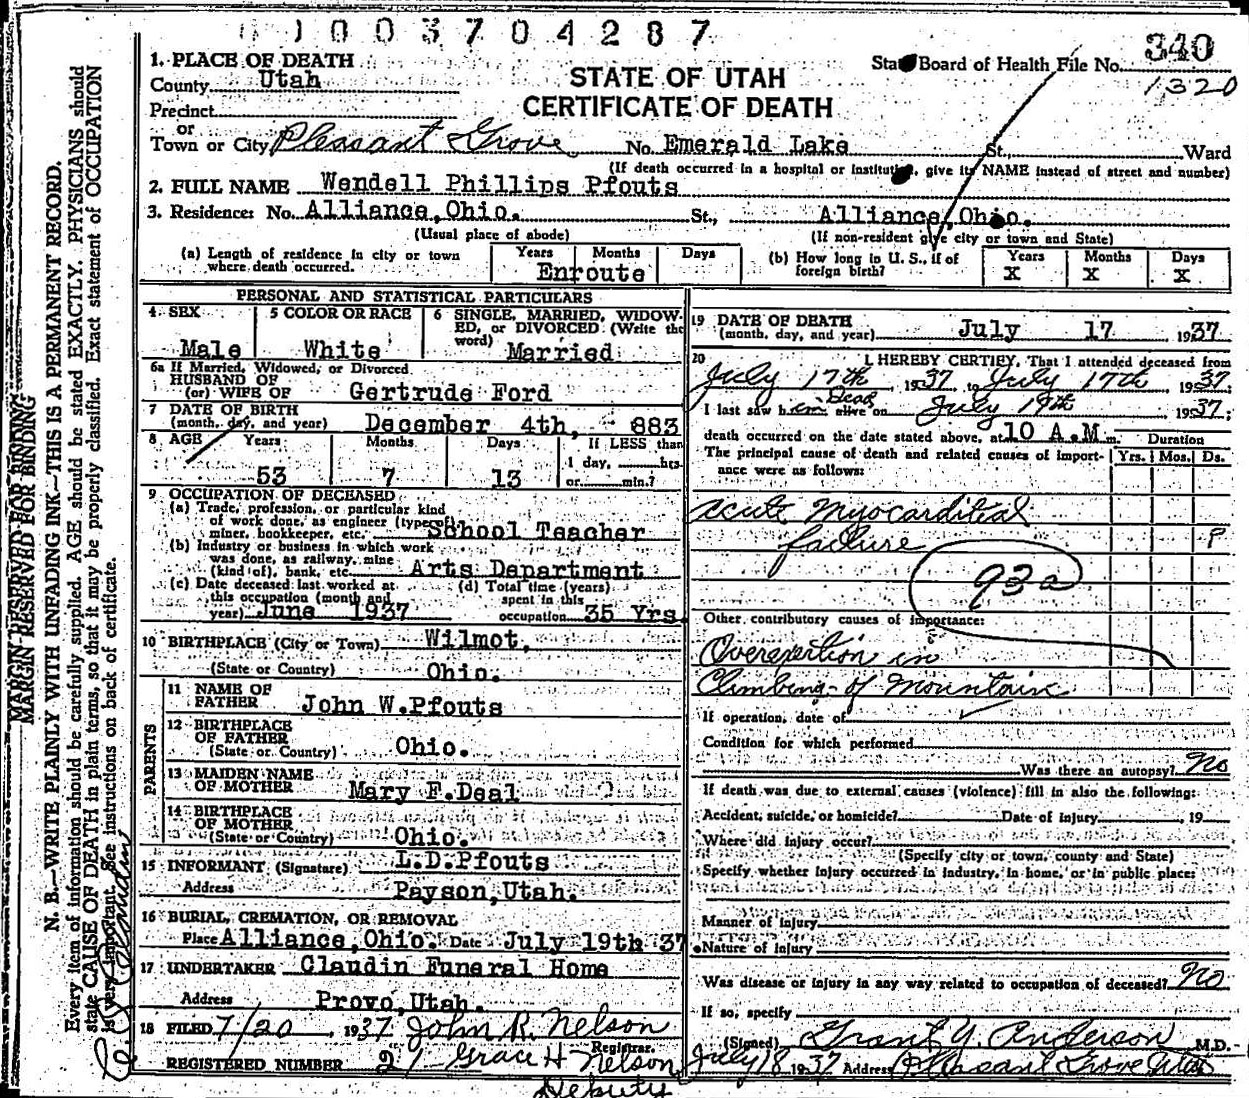 1003704287
340
1320
1. PLACE OF DEATH
County Utah
Precinct
or
Town or City Pleasant Grove No. Emerald Lake St., Ward
STATE OF UTAH
CERTIFICATE OF DEATH
State Board of Health File No.
(If death occurred in a hospital or institution, give its NAME instead of street and number)
2. FULL NAME Wendell Phillips Pfouts
3. Residence: No. Alliance, Ohio. St., Alliance, Ohio.
(Usual place of abode) (If non-resident give city or town and State)
(a) Length of residence in city or town where death occurred. Years Months Days
Enroute
(b) How long in U. S., if of foreign birth? Years Months Days
X X X
PERSONAL AND STATISTICAL PARTICULARS
4 SEX 5 COLOR OR RACE 6 SINGLE, MARRIED, WIDOWED, or DIVORCED (Write the word)
Male White Married
6a If Married, Widowed, or Divorced
HUSBAND OF
(or) WIFE OF Gertrude Ford
7 DATE OF BIRTH
(month, day, and year) December 4th, 883
8 AGE Years Months Days If LESS than
1 day, hrs.
or min.?
53 7 13
9 OCCUPATION OF DECEASED
(a) Trade, profession, or particular kind
of work done, as engineer (type of)
miner, bookkeeper, etc. School Teacher
(b) Industry or business in which work
was done, as railway, mine
(kind of), bank, etc. Arts Department
(c) Date deceased last worked at
this occupation (month and
year) June 1937
(d) Total time (years)
spent in this
occupation 35 Yrs.
10 BIRTHPLACE (City or Town) Wilmot,
(State or Country) Ohio.
PARENTS
11 NAME OF
FATHER John W.Pfouts
12 BIRTHPLACE
OF FATHER
(State or Country) Ohio.
13 MAIDEN NAME
OF MOTHER Mary F.Deal
14 BIRTHPLACE
OF MOTHER
(State or Country) Ohio.
15 INFORMANT (Signature) L.D.Pfouts
Address Payson,Utah.
16 BURIAL, CREMATION, OR REMOVAL
Place Alliance,Ohio. Date July 19th 37
17 UNDERTAKER Claudin Funeral Home
Address Provo,Utah.
18 FILED 7/20, 1937 John R. Nelson
Registrar.
REGISTERED NUMBER 29 Grace H Nelson
Deputy
19 DATE OF DEATH
(month, day, and year) July 17 1937
20 I HEREBY CERTIFY, That I attended deceased from
July 17th, 1937, to July 17th, 1937.
Dead
I last saw him alive on July 17th, 1937;
death occurred on the date stated above, at 10 A.M m. Duration
The principal cause of death and related causes of importance were as follows: Yrs. Mos. Ds.
Acute Myocarditial
failure
93a
Other contributory causes of importance:
Overexertion in
Climbing of Mountain
If operation, date of
Condition for which performed
Was there an autopsy? No
If death was due to external causes (violence) fill in also the following:
Accident, suicide, or homicide? Date of injury , 19
Where did injury occur?
(Specify city or town, county and State)
Specify whether injury occurred in industry, in home, or in public place:
Manner of injury
Nature of injury
Was disease or injury in any way related to occupation of deceased? No
If so, specify
(Signed) Grant Y. Anderson M.D.
July 18 1937 Address Pleasant Grove Utah
MARGIN RESERVED FOR BINDING
N. B.—WRITE PLAINLY WITH UNFADING INK—THIS IS A PERMANENT RECORD.
Every item of information should be carefully supplied. AGE should be stated EXACTLY. PHYSICIANS should
state CAUSE OF DEATH in plain terms, so that it may be properly classified. Exact statement of OCCUPATION
is very important. See instructions on back of certificate.